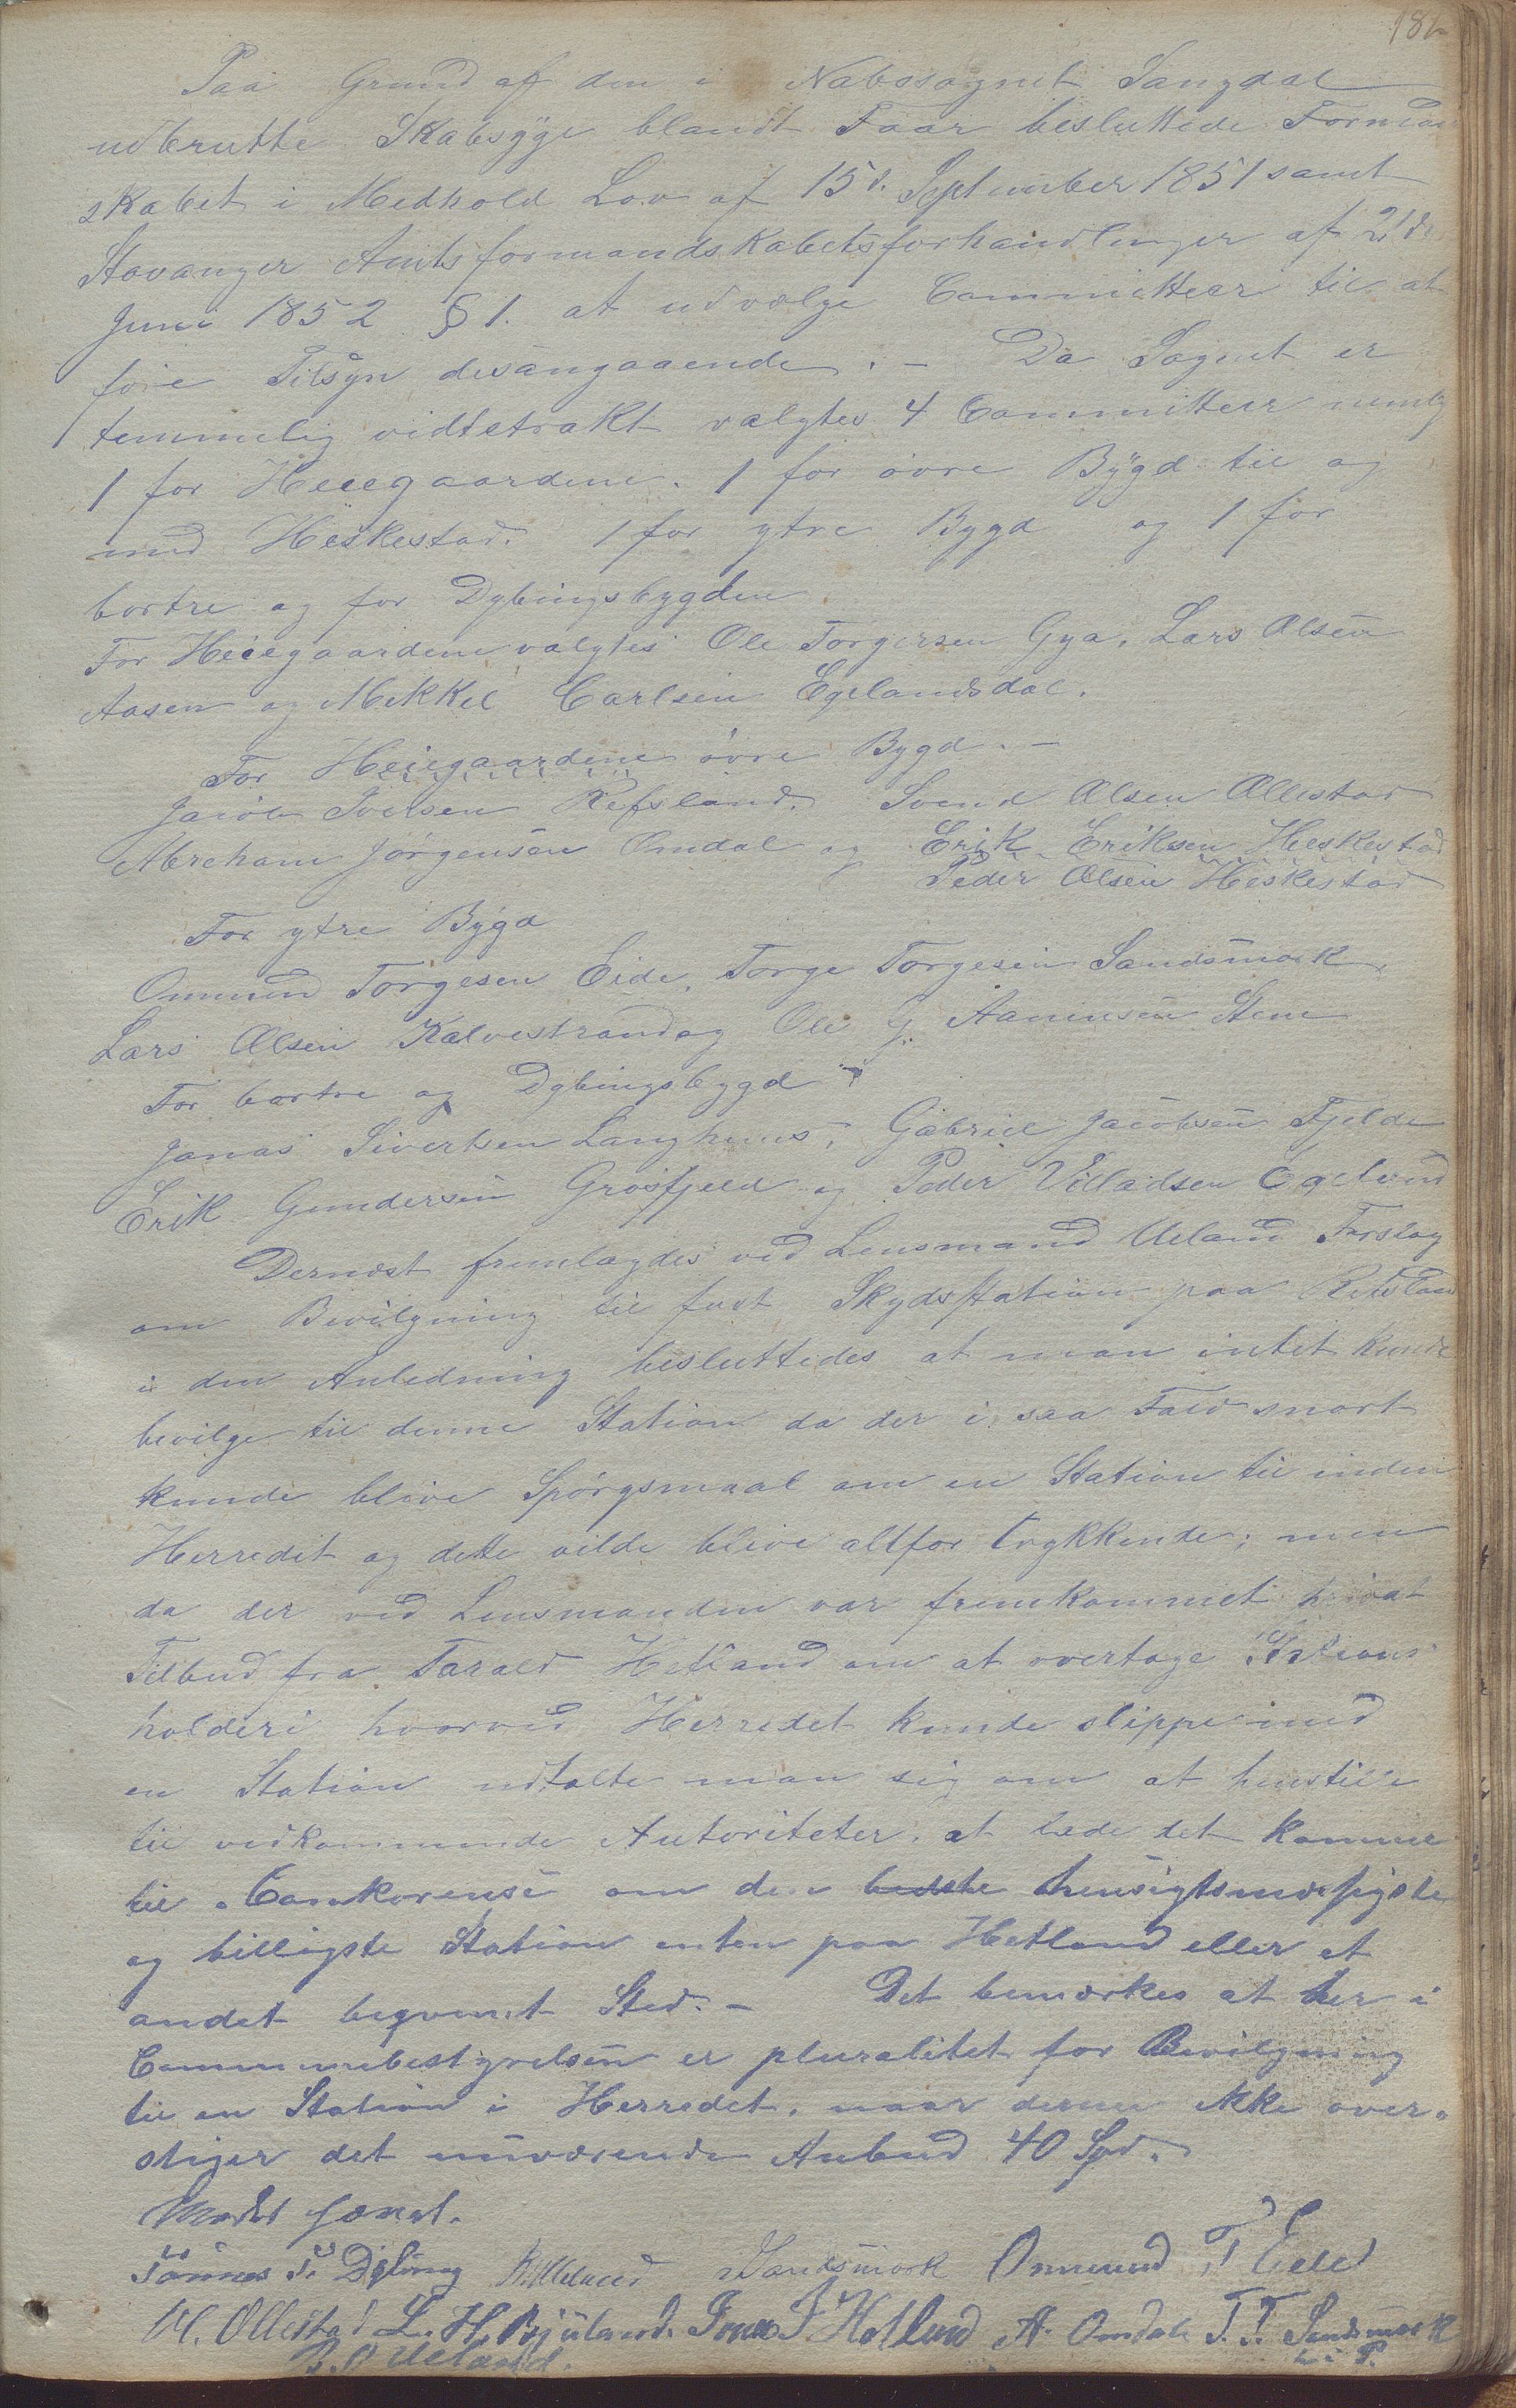 186
Paa Grund af den i Nabosognet Sangdal
udbrutte Skabsyge blandt Faar besluttede Formand
skabet i Medhold Lov af 15d. September 1851 samt
Stavanger Amtsformandskabetsforhandlinger af 21de
Juni 1852 § 1. at udvælge Committeer til at
føre Tilsyn desangaaende. - Da Sognet er
temmelig vidtstrakt valgtes 4 Committeer nemlg
1 for Heiegaardene. 1 for øvre Bygd til og
med Heskestad. 1 for ytre Bygd og 1 for
bortre og for Dybingsbygden
For Heiegaardene valgtes Ole Torgersen Gya. Lars Olsen
Aasen og Mikkel Carlsen Egelandsdal.
For Heiegaardene øvre Bygd. -
Jacob Iversen Refsland. Svend Olsen Ollestad
Abraham Jørgensen Omdal og Erik Eriksen Heskestad
Peder Olsen Heskestad
For ytre Bygd
Ommund Torgesen Eide, Torge Torgesen Sandsmark,
Lars Olsen Kalvestrand og Ole G. Aanensen Stene
For bortre og Dybingsbygd
Jonas Sivertsen Langhuus, Gabriel Jacobsen Fjelde
Erik Gundersen Grosfjeld og Peder Villadsen Egeland
Dernæst fremlagdes ved Lensmand Ueland Forslag
om Bevilgning til fast Skydsstation paa Refsland
i den Anledning besluttedes at man intet kunde
bevilge til denne Station da der i saa Fald snart
kunde blive Spørgsmaal om en Station til inden
Herredet og dette vilde blive altfor trykkende; men
da der ved Lensmanden var fremkommet privat
Tilbud fra Tarald Hetland om at overtage Stations
holderi hvorved Herredet kunde slippe med
en Station udtalte man sig om at henstille
til vedkommende Autoriteter. at lade det komme
til Conkorense om den beste hensigtsmæssigste
og billigste Station enten paa Hetland eller et
andet beqvemt Sted. - Det bemærkes at her i
Communebestyrelsen er pluralitet for Bevilgning
til en Station i Herredet, naar denne ikke over-
stiger det nuværende Anbud 40 Spd.
Mødet hævet.
Tønnes T. Dybing Ueland Sandsmark Ommund T Eide
W. Ollestad L. H. Bjuland. Jonas J Hetland A. Omdal T. T. Sandsmark
B. O Ueland. m. i P.